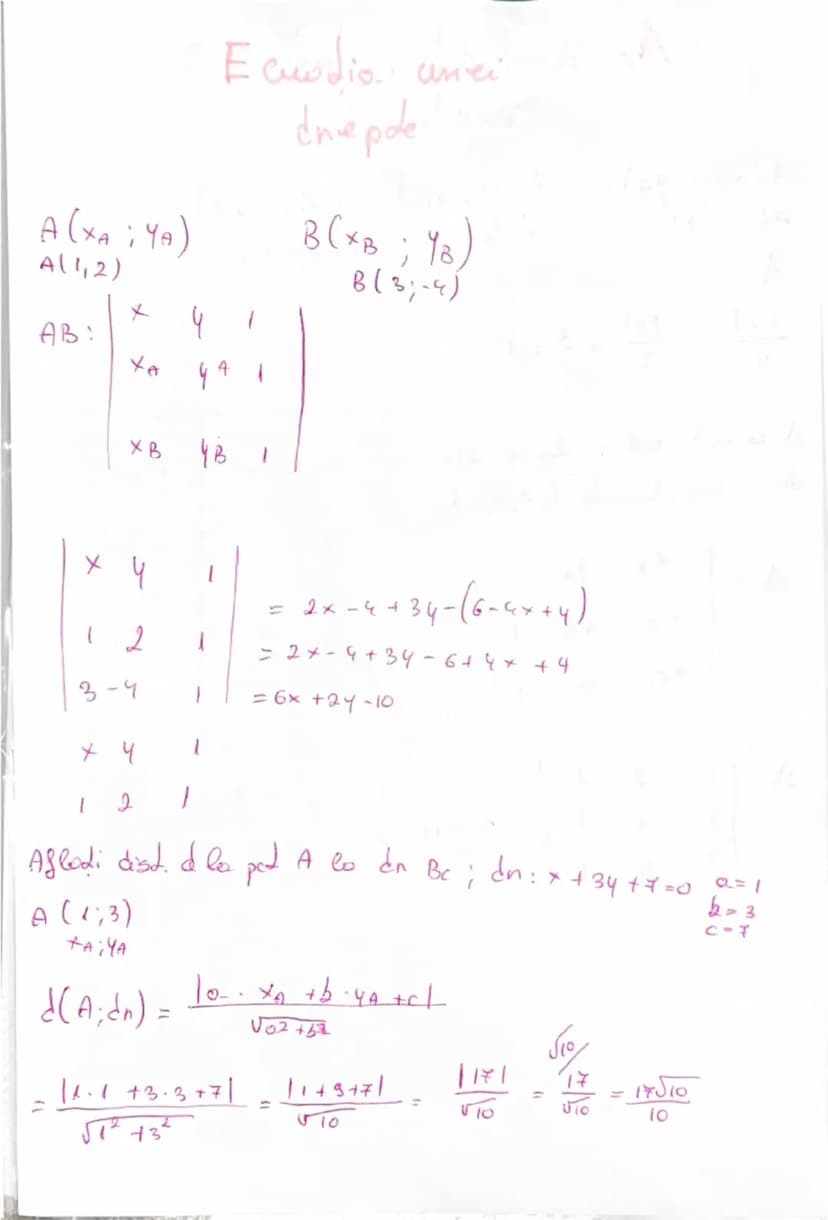 Ecuația unei
drepte
A(xA ; yA) B(xB ; yB)
A(1,2) B(3;-4)
AB: | x y 1 |
| xA yA 1 |
| xB yB 1 |
| x y 1 |
| 1 2 1 | = 2x - 4 + 3y - (6 - 4x + y)
= 2x - 4 + 3y - 6 + 4x + y
| 3 -4 1 | = 6x + 2y - 10
x y 1
1 2 1
Aflați dist. d la pct A la dr BC ; dr: x + 3y + 7 = 0 a = 1
b = 3
A (1;3) c = 7
xA;yA
d(A;dr) = |a · xA + b · yA + c| / √a² + b²
= |1·1 + 3·3 + 7| / √1² + 3² = |1 + 9 + 7| / √10 = |17| / √10 = √10/ 17 / √10 = 17√10 / 10